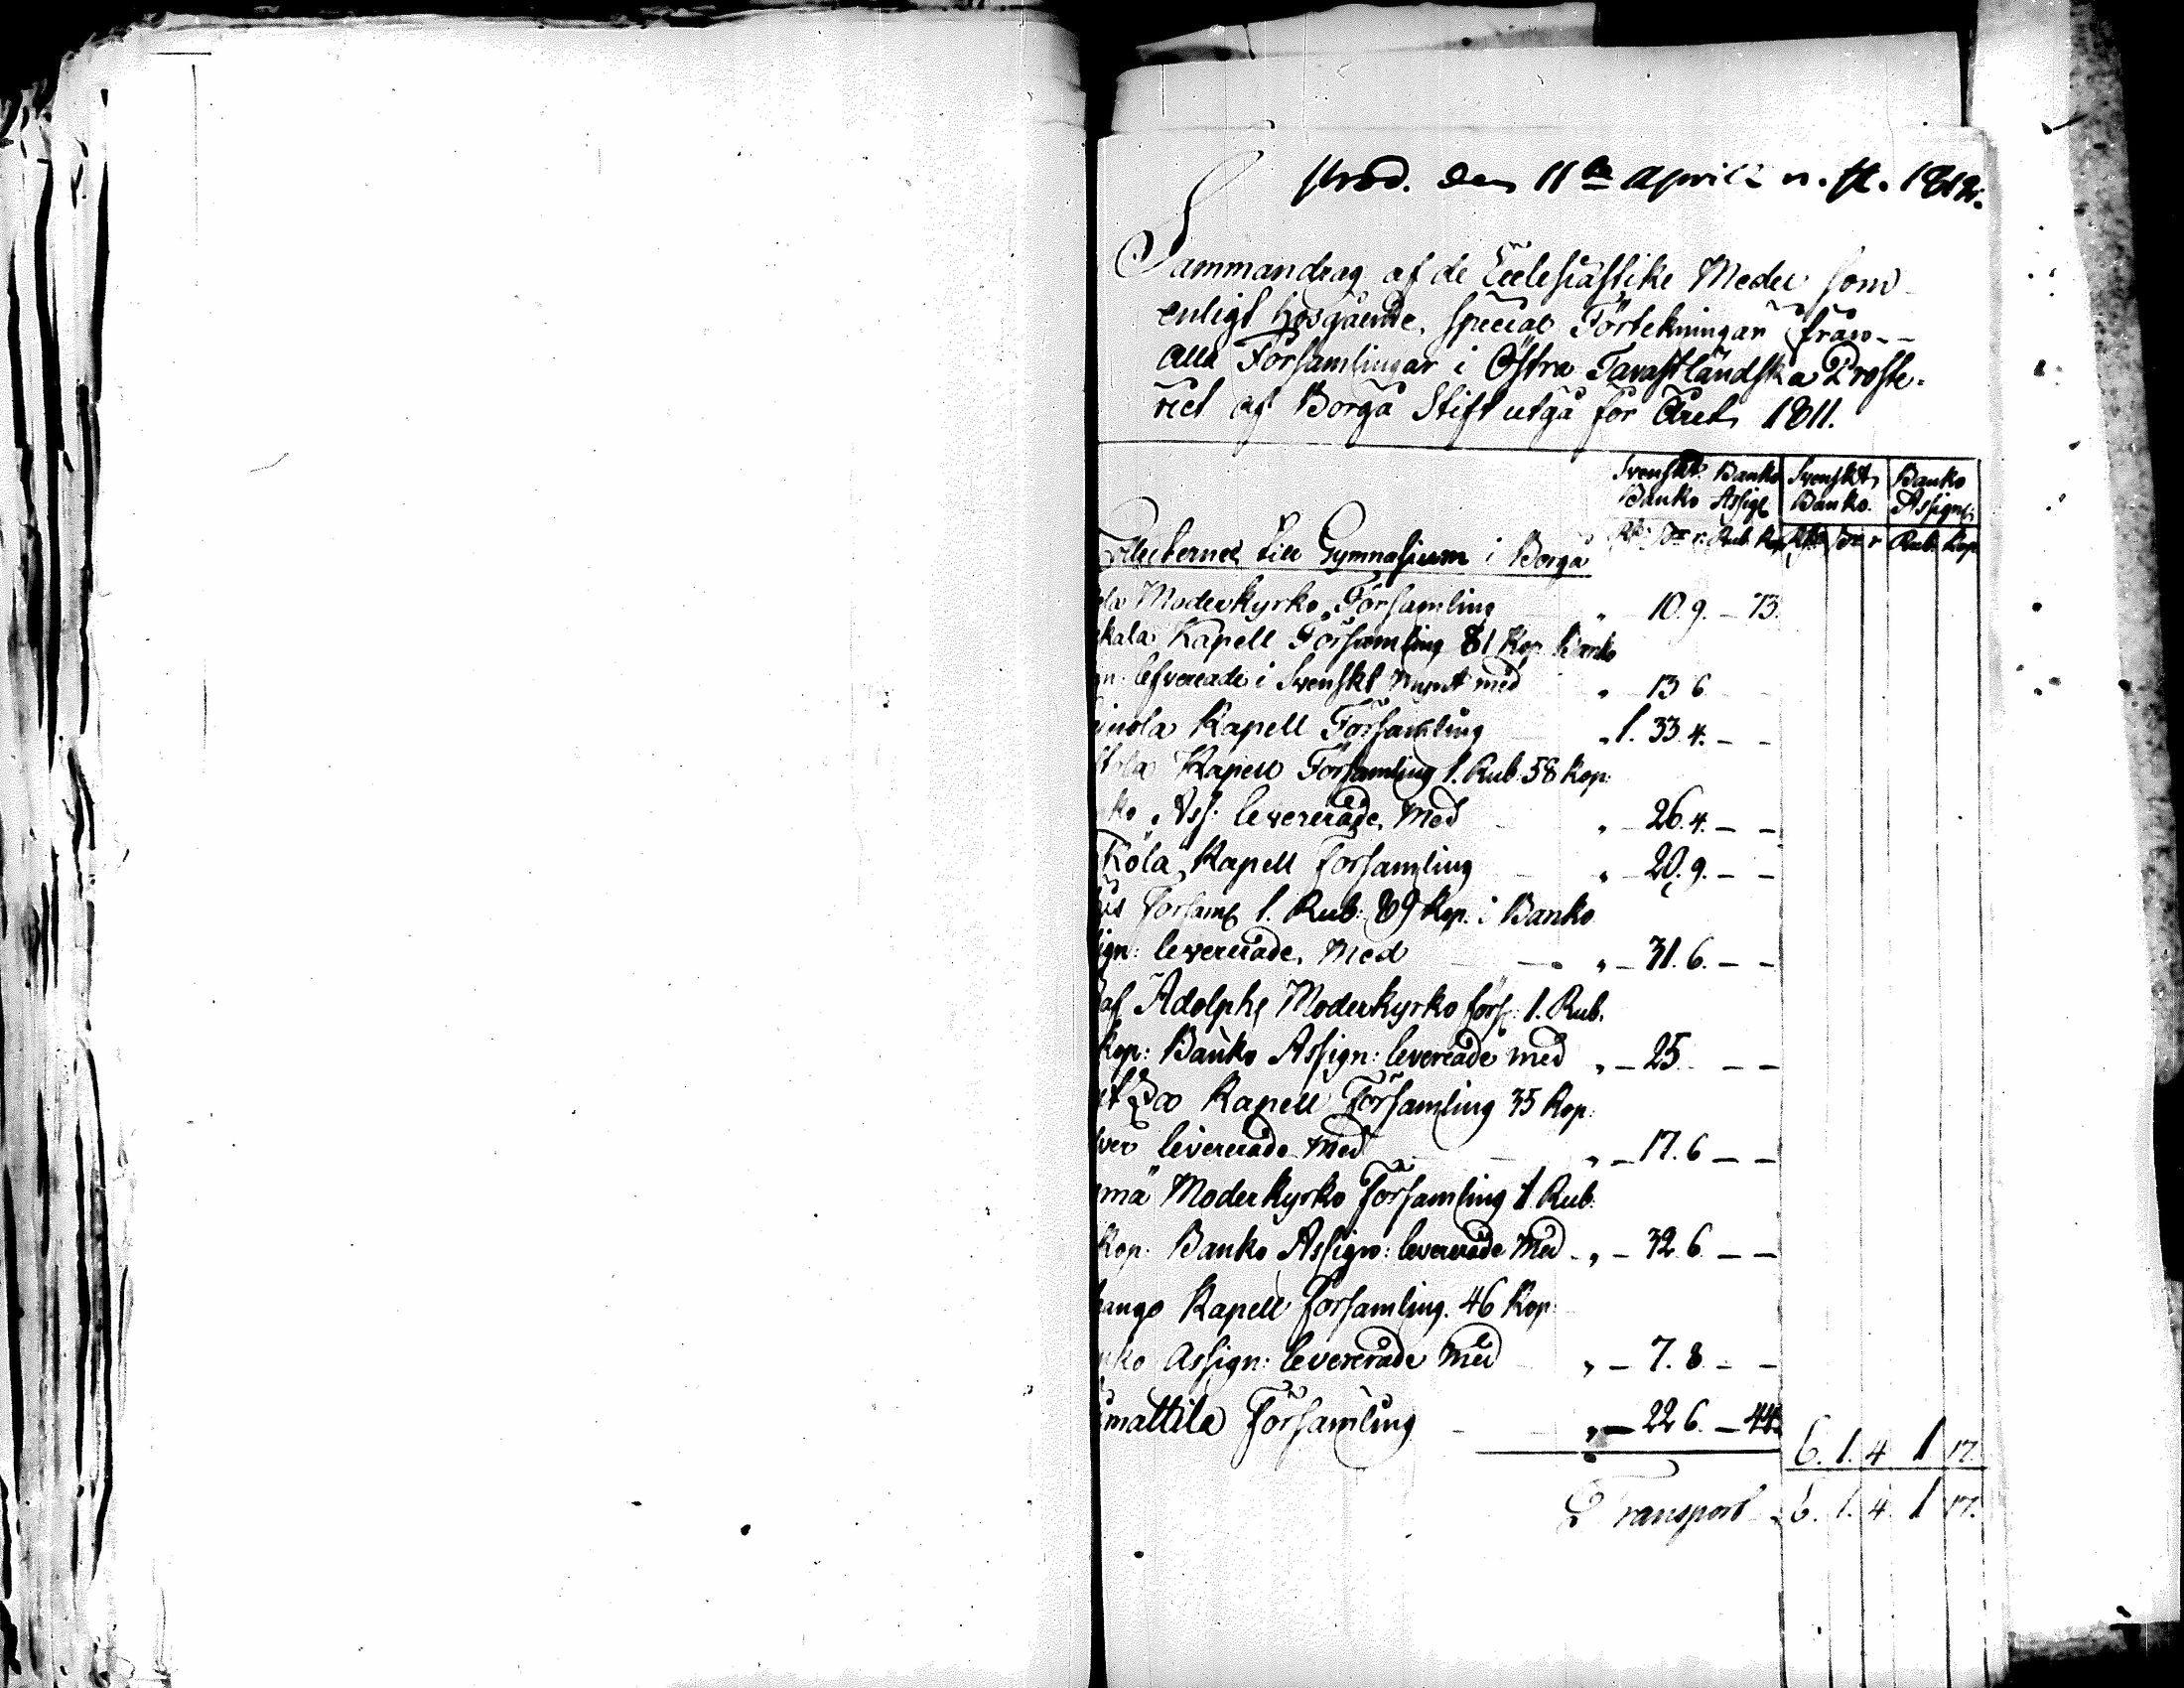 prod. den 11te April n. st. 1812.
Sammandrag af de Ecclesiastike Medel som
enligt hosgående special Förtekningar från
alla Församlingar i Östra Tavastländska Proste-
riet af Borgå Stift utgå för Året 1811.
Svenskt Banko Svenskt Banko
Banko Assig Banko. Assign:
Rub. Kop Rub. Kop
Collecterne till Gymnasium i Borgå
ola Moderkyrko Församling " - 10. 9. - 73.
kala Kapell Församling 81 Kop. Banko
gn: lefvererade i Svenskt Mynt med " - 13 6. -
inola Kapell Församling " 1. 33. 4. - -
stola Kapell Församling 1. Rub. 58 Kop:
ko Ass: levererade med " - 26. 4. - -
Kola Kapell Församling " - 20. 9. - -
Förs 1. Rub: 89 Kop. i Banko
ign: levererade med " - 31. 6. - -
af Adolphs Moderkyrko förs: 1. Rub.
Kop: Banko Assign: levererade med " - 25. - -
Kapell Församling 35 Kop:
ver levererade med " - 17. 6 - -
mä Moderkyrko Församling 1. Rub.
Kop: Banko Assign: levererade med " - 32. 6 - -
Kapell församling. 46 Kop:
ko Assign: levererade med " - 7. 8. - -
mattila Församling " - 22 6. - 44.
6. 1. 4 1 17.
Transport 6. 1. 4. 1 17.